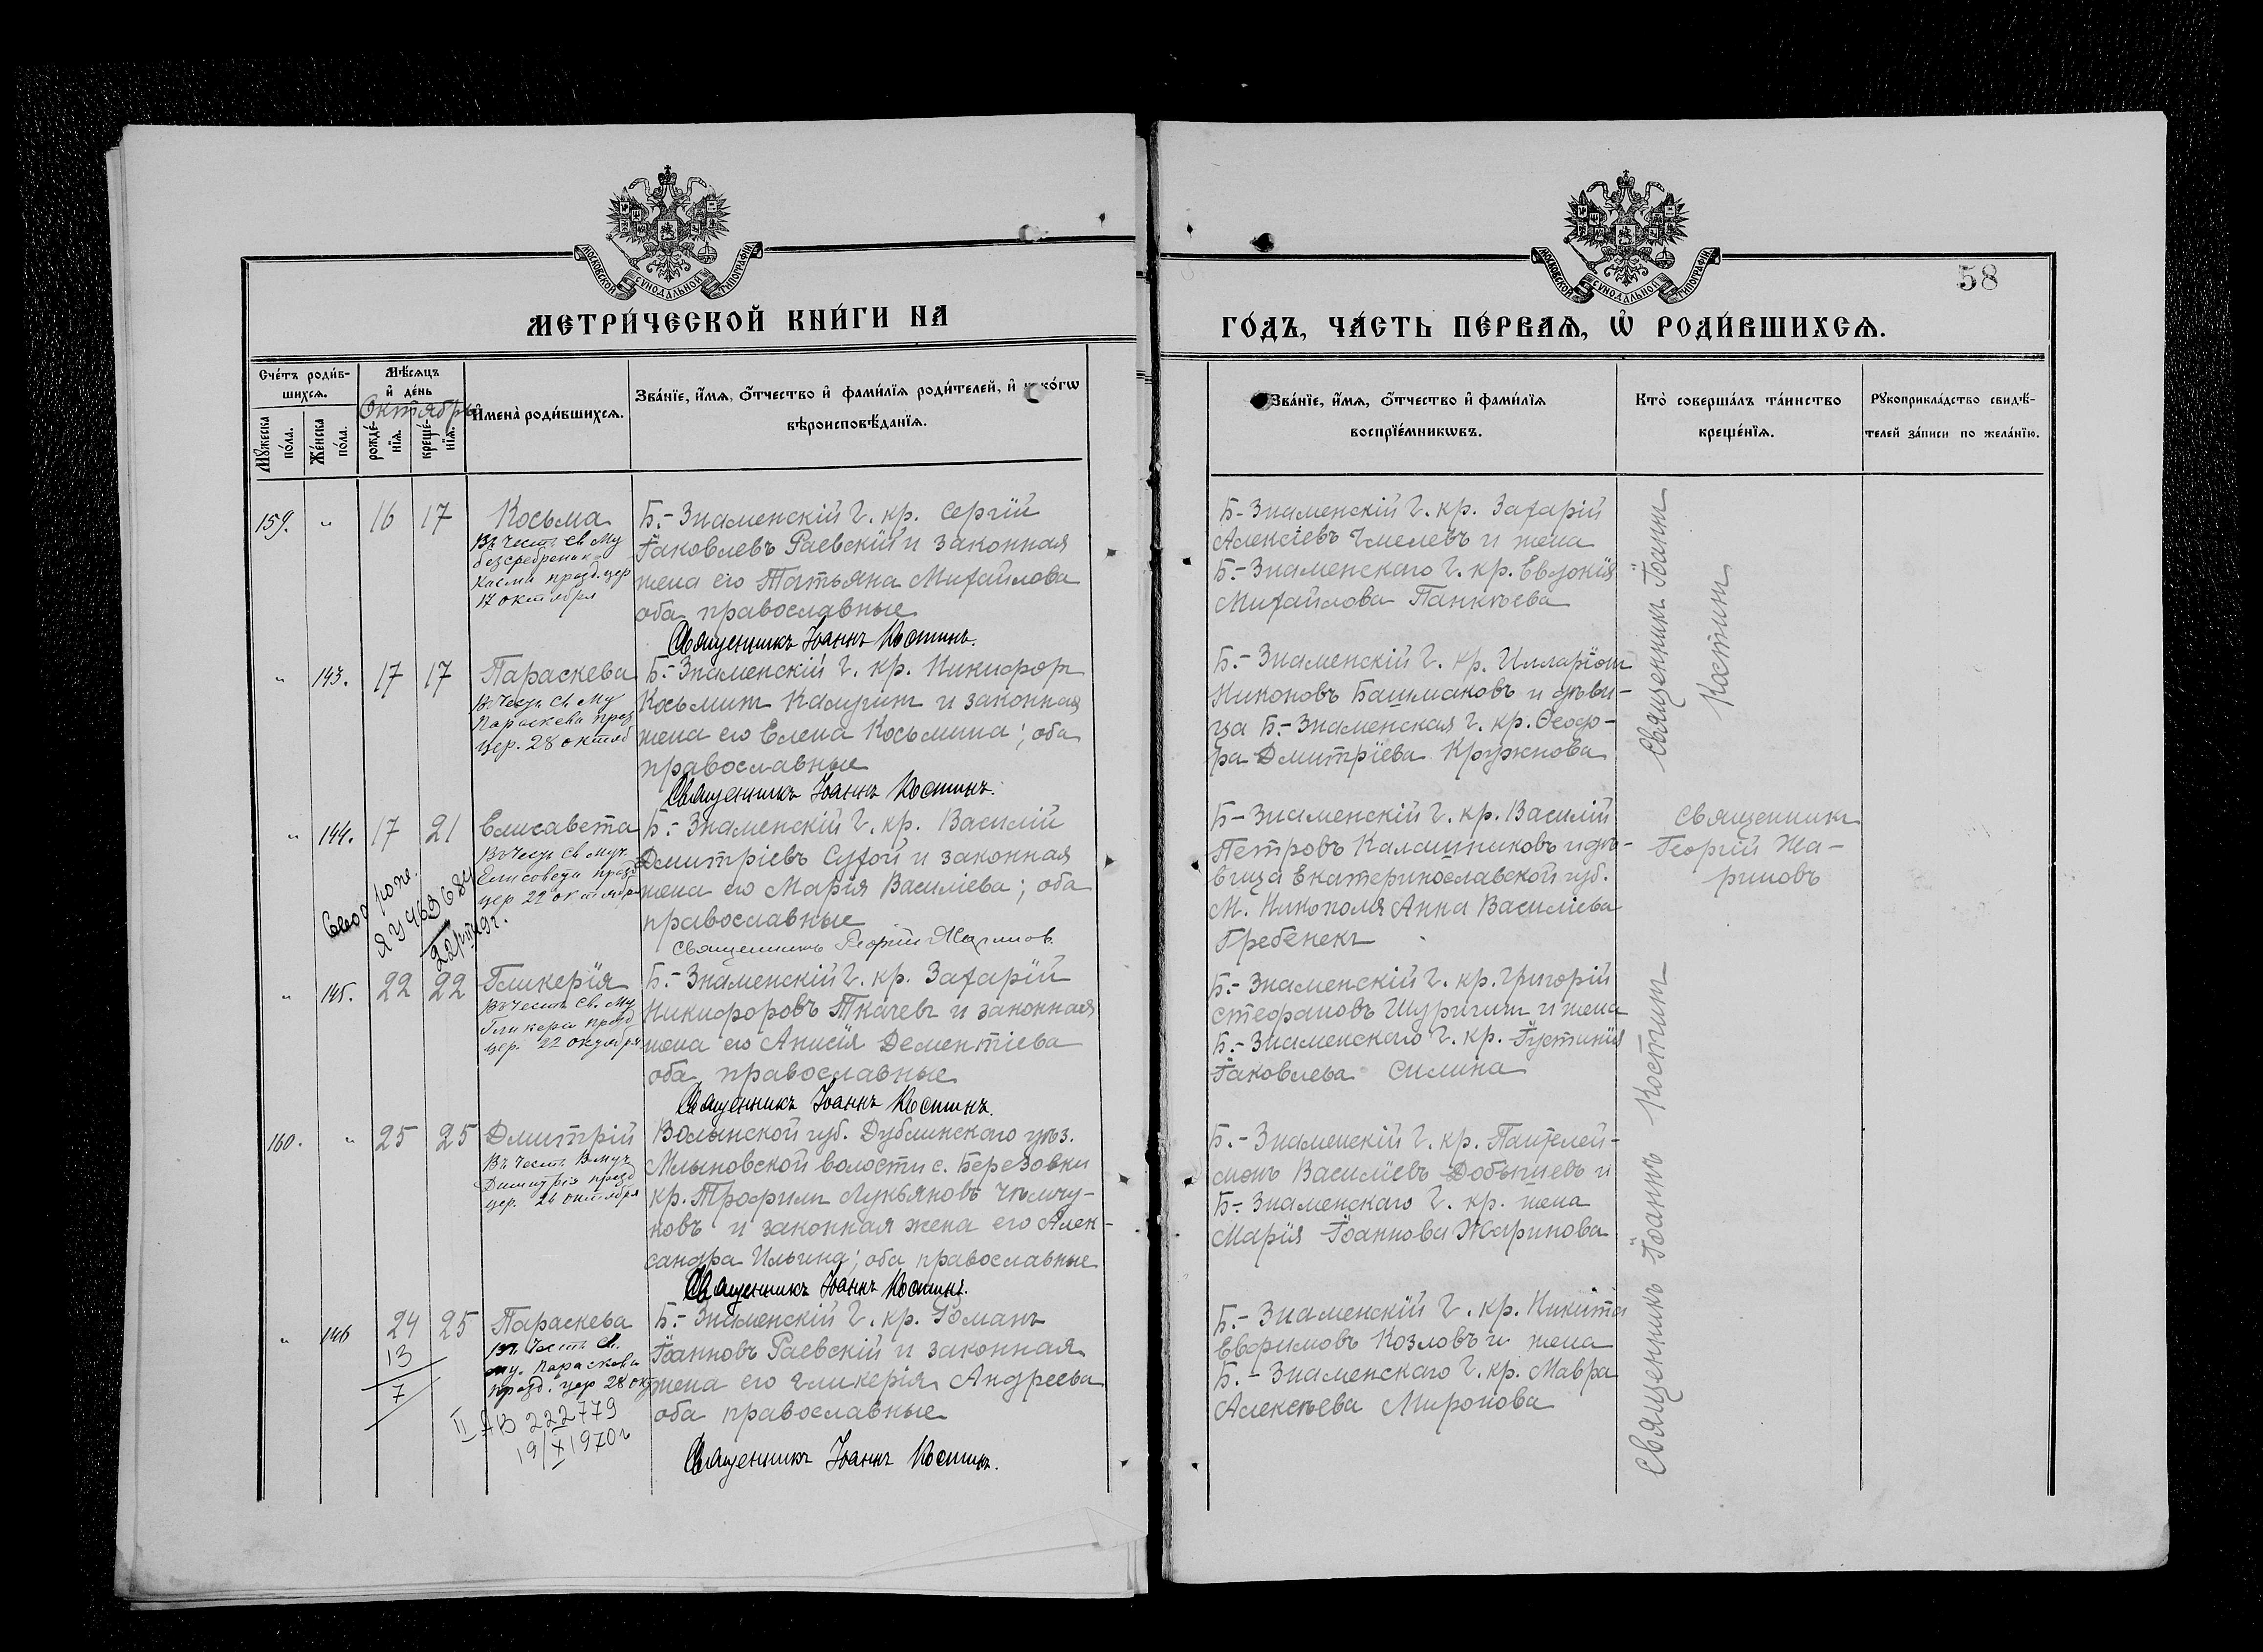 МОСКОВСКОЙ СѴНОДАЛЬНОЙ ТИПОГРАФІИ
МЕТРИ́ЧЕСКОЙ КНИ́ГИ НА
Сче́тъ роди́в-
шихсѧ.
Мꙋжеска
по́ла.
Же́нска
по́ла.
Мѣ́сѧцъ
и҆ де́нь
Октябрь
рожде́-
нїѧ.
креще́-
нїѧ.
И҆мена̀ роди́вшихсѧ.
Зва́нїе, и҆́мѧ, ѻ҆́тчество и҆ фами́лїѧ роди́телей, и҆ ко́гѡ
вѣроисповѣ́данїѧ.
159. " 16 17 Косьма
Въ честь св му
безсребреник
Касми празд. цер
17 октября
Б.-Знаменскій г. кр. Сергій
Іаковлевъ Раевскій и законная
жена его Татьяна Михайлова
оба православные
Священникъ Іоаннъ Костинъ.
" 143. 17 17 Параскева
Въ честь св му
Параскеви праз
цер. 28 октяб
Б.-Знаменскій г. кр. Никифоръ
Косьминъ Калугинъ и законная
жена его Елена Косьмина; оба
православные
Священникъ Іоаннъ Костинъ.
" 144. 17 21 Елисавета
Въ честь св муч.
Елисовети празд
цер 22 октября
ЯУ 4636 84
Б.-Знаменскій г. кр. Василій
Дмитріевъ Сухой и законная
жена его Марія Василіева; оба
православные
Священникъ Георгій Жариновъ
" 145. 22 22 Гликерія
Въ честь св. му
Гликеріи празд
цер. 22 октября
Б.-Знаменскій г. кр. Захарій
Никифоровъ Ткачевъ и законная
жена его Анисія Дементіева
оба православные
Священникъ Іоаннъ Костинъ.
160. " 25 25 Дмитрій
Въ честь Вмуч
Димитрія празд
цер. 26 октября
Волынской губ. Дубминскаго уѣз.
Млыновской волости с. Березовки
кр. Трофимъ Лукьяновъ Чѣлму-
новъ и законная жена его Алек-
сандра Ильина; оба православные
Священникъ Іоаннъ Костинъ.
" 146 24 25 Параскева
13
7
Въ честь св.
му. Параскеви
празд. цер 28 окт
II АВ 222779
19/X 1970г
Б.-Знаменскій г. кр. Романъ
Іоанновъ Раевскій и законная
жена его Гликерія Андреева
оба православные
Священникъ Іоаннъ Костинъ.
МОСКОВСКОЙ СѴНОДАЛЬНОЙ ТИПОГРАФІИ
58
ГО́ДЪ, ЧА́СТЬ ПЕ́РВАѦ, Ѽ РОДИ́ВШИХСѦ.
Зва́нїе, и҆́мѧ, ѻ҆́тчество и҆ фами́лїѧ
воспрїе́мникѡвъ.
Кто̀ соверша́лъ та́инство
креще́нїѧ.
Рꙋкоприкла́дство свидѣ́-
телей за́писи по жела́нїю.
Б-Знаменскій г. кр. Захарій
Алексіевъ Гмелевъ и жена
Б.-Знаменскаго г. кр. Евдокія
Михайлова Панкѣева
Б.-Знаменскій г. кр. Илларіонъ
Никоновъ Башмаковъ и дѣви-
ца Б.-Знаменская г. кр. Ѳеодо-
ра Дмитріева Кружнова
Священникъ Іоаннъ
Костинъ
Б-Знаменскій г. кр. Василій
Петровъ Калашниковъ и дѣ-
вица Екатеринославской губ.
М. Никополя Анна Василіева
Гребенекъ
Священникъ
Георгій Жа-
риновъ
Б.-Знаменскій г. кр. Григорій
Стефановъ Шуригинъ и жена
Б.-Знаменскаго г. кр. Іустинія
Іаковлева Силина
Б.-Знаменскій г. кр. Пантелей-
монъ Василіевъ Добычиевъ и
Б.-Знаменскаго г. кр. жена
Марія Іоаннова Жаринова
Б.-Знаменскій г. кр. Никита
Евфимовъ Козловъ и жена
Б.-Знаменскаго г. кр. Мавра
Алексѣева Миронова
Священникъ Іоаннъ Костинъ